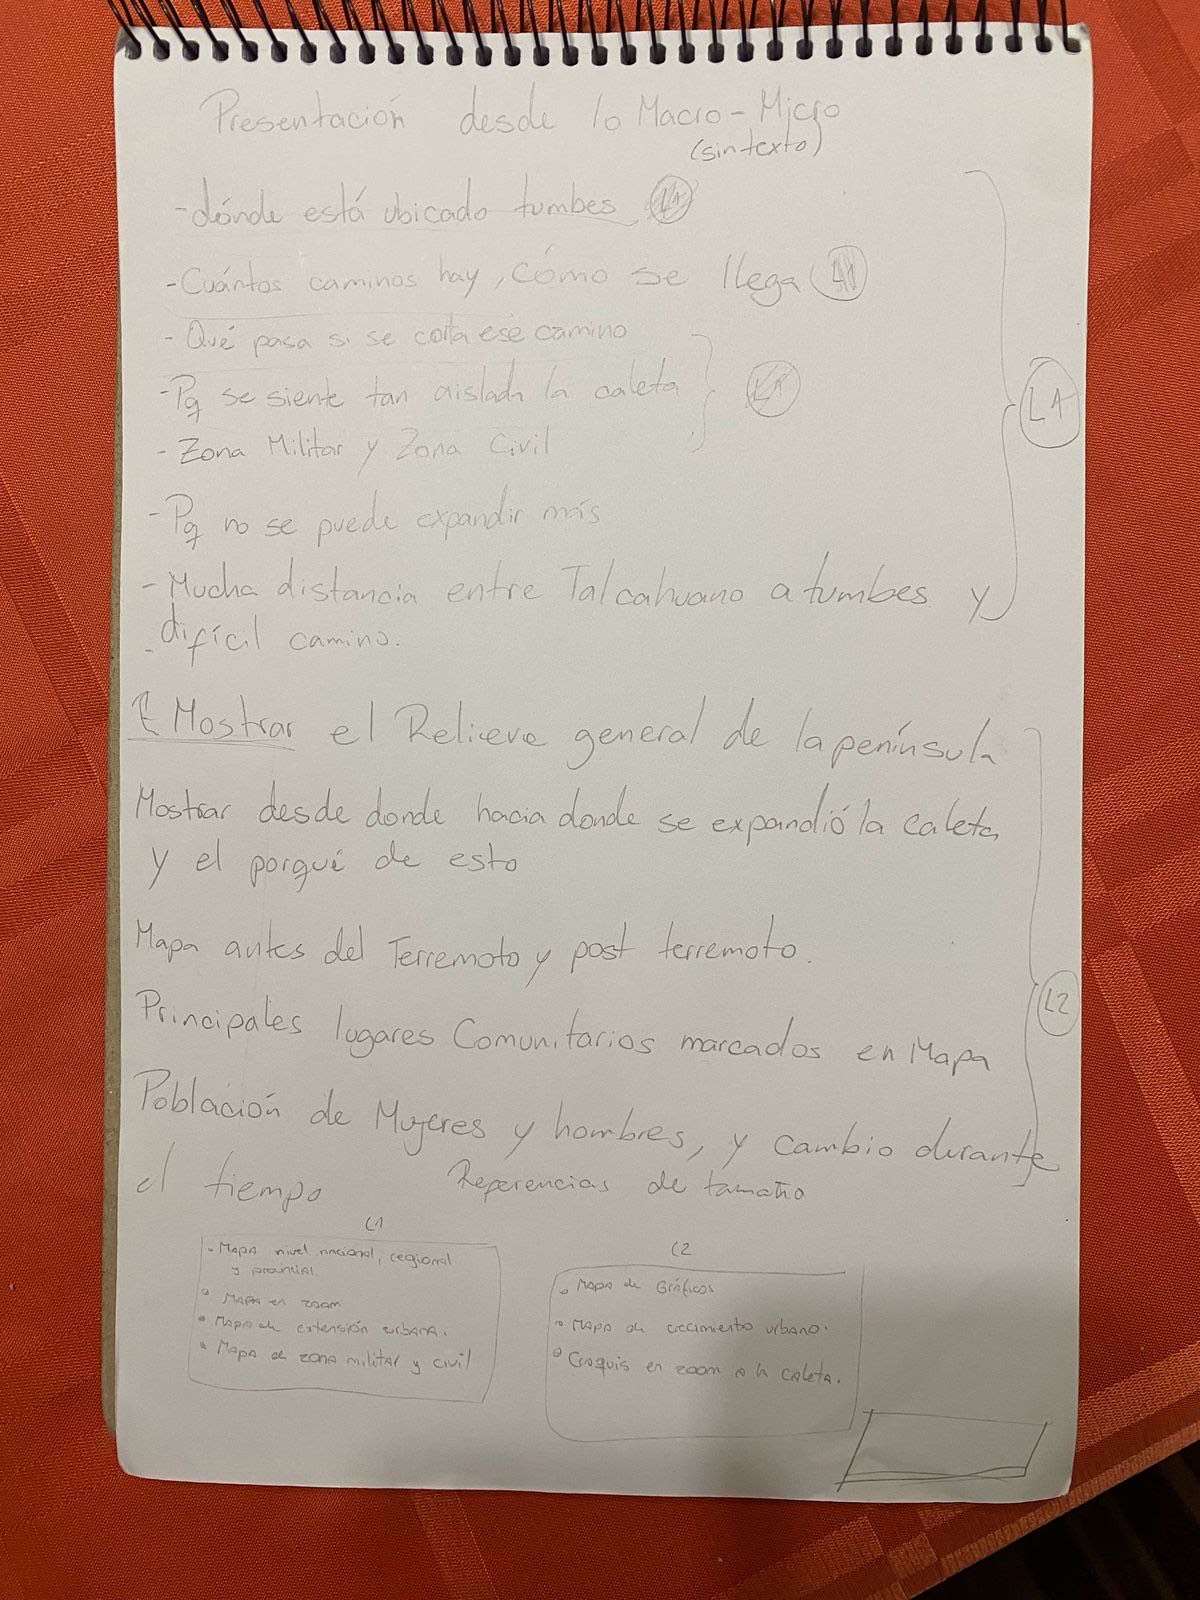 Presentación desde lo Macro - Micro
(sin texto)
- dónde está ubicado tumbes L1
- Cuántos caminos hay, cómo se llega L1
- Qué pasa si se corta ese camino
- Pq se siente tan aislada la caleta L1
- Zona Militar y Zona Civil
L1
- Pq no se puede expandir más
- Mucha distancia entre Talcahuano a tumbes y
difícil camino.
Mostrar el Relieve general de la península
Mostrar desde donde hacia donde se expandió la caleta
y el porqué de esto
Mapa antes del Terremoto y post terremoto.
L2
Principales lugares Comunitarios marcados en Mapa
Población de Mujeres y hombres, y cambio durante
el tiempo Referencias de tamaño
L1
• Mapa nivel nacional, regional
y provincial.
• Mapa en zoom
• Mapa de extensión urbana.
• Mapa de zona militar y civil
L2
• Mapa de Gráficos
• Mapa de crecimiento urbano.
• Croquis en zoom a la caleta.